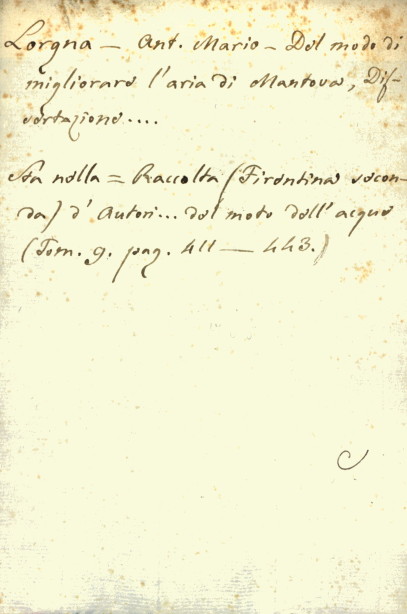 Lorgna — Ant. Mario — Del modo di
migliorare l'aria di Mantova, Dis-
sertazione....
Sta nella = Raccolta (Fiorentina secon-
da) d'Autori... del moto dell'acque
(Tom. 9. pag. 411 — 443.)